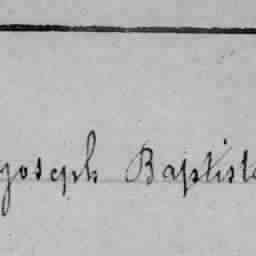 Joseph Baptiste